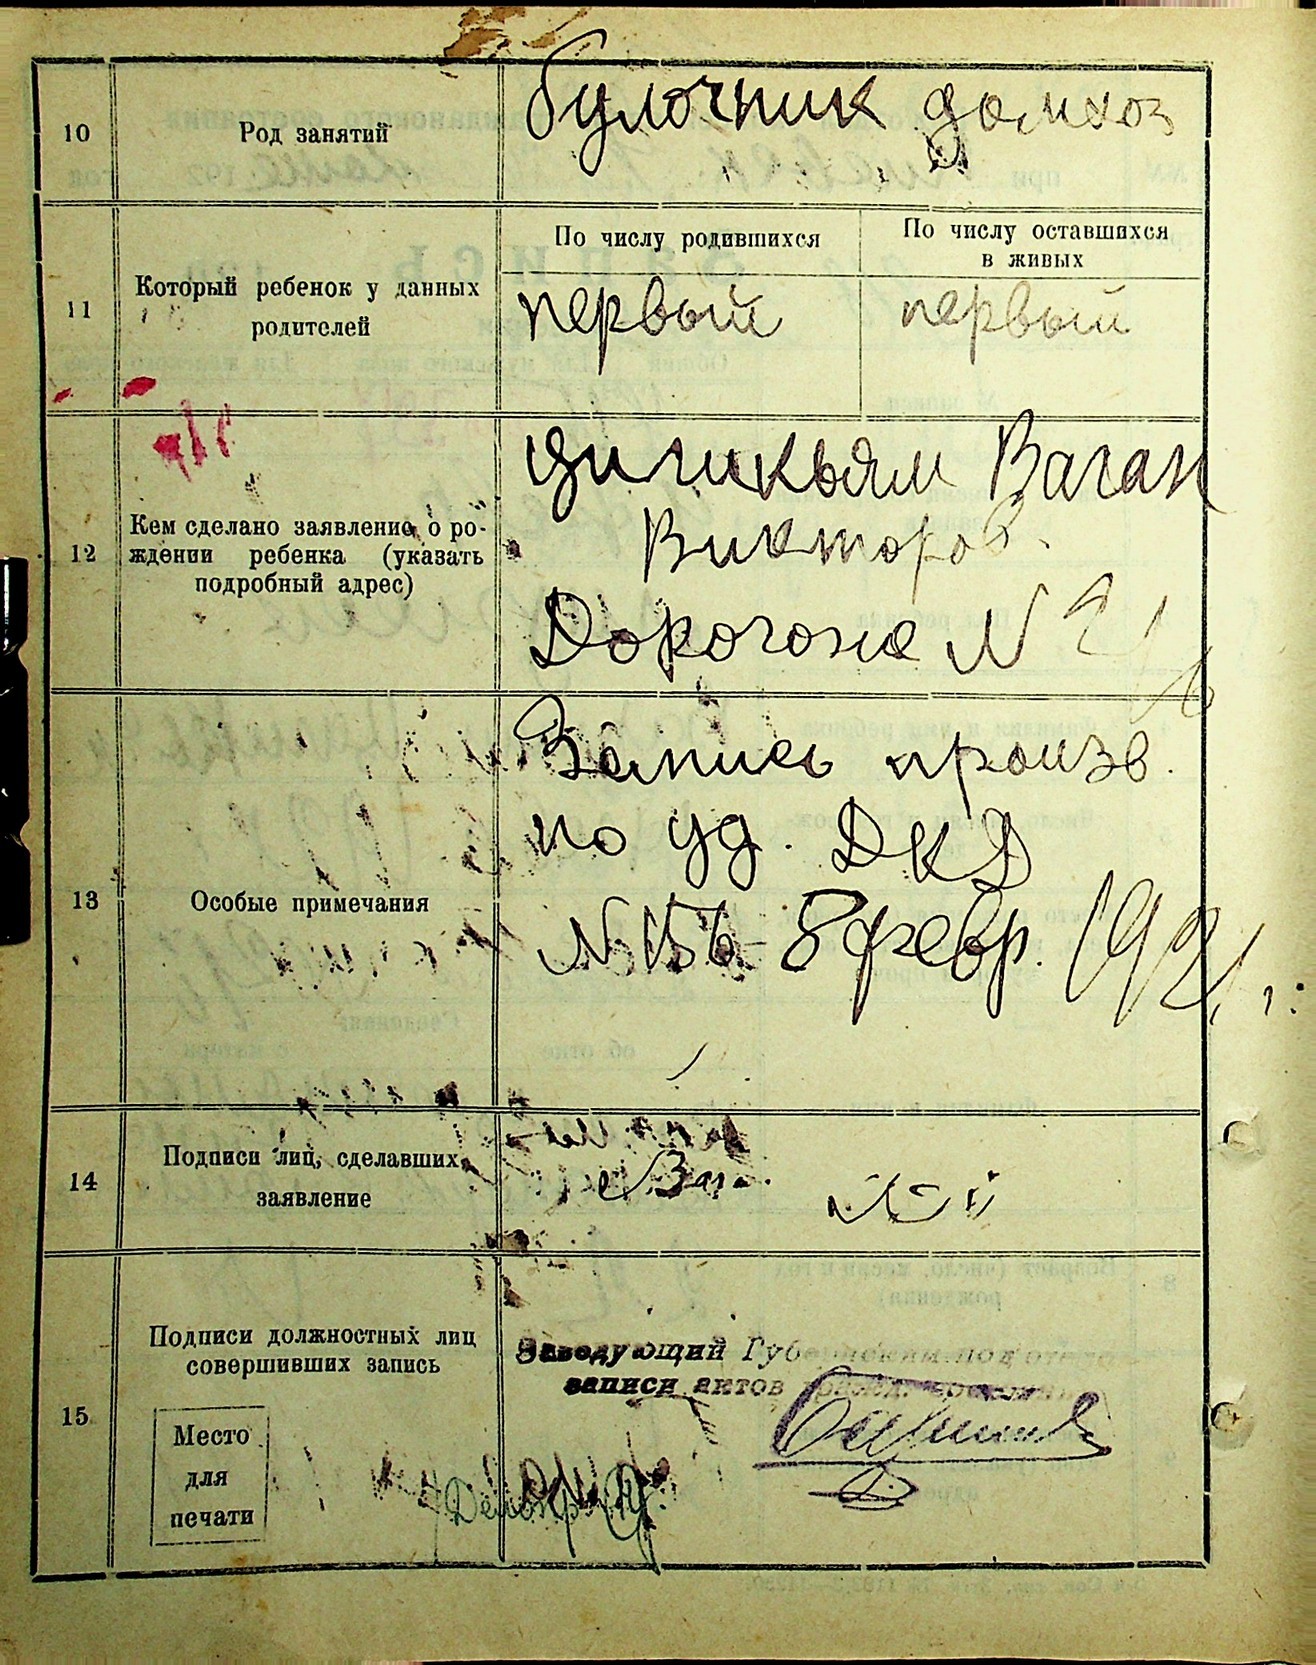 10
Род занятий
булочник домхоз
11
Который ребенок у данных
родителей
По числу родившихся
По числу оставшихся
в живых
первый
первый
12
Кем сделано заявление о ро-
ждении ребенка (указать
подробный адрес)
Ваган
Викторов.
N 21
13
Особые примечания
Запись произв.
по уд. ДКД
N 156 8 февр. 1921 г.
14
Подписи лиц, сделавших
заявление
15
Подписи должностных лиц
совершивших запись
Место
для
печати
Заведующий Губернским подотделом
записи актов гражд.